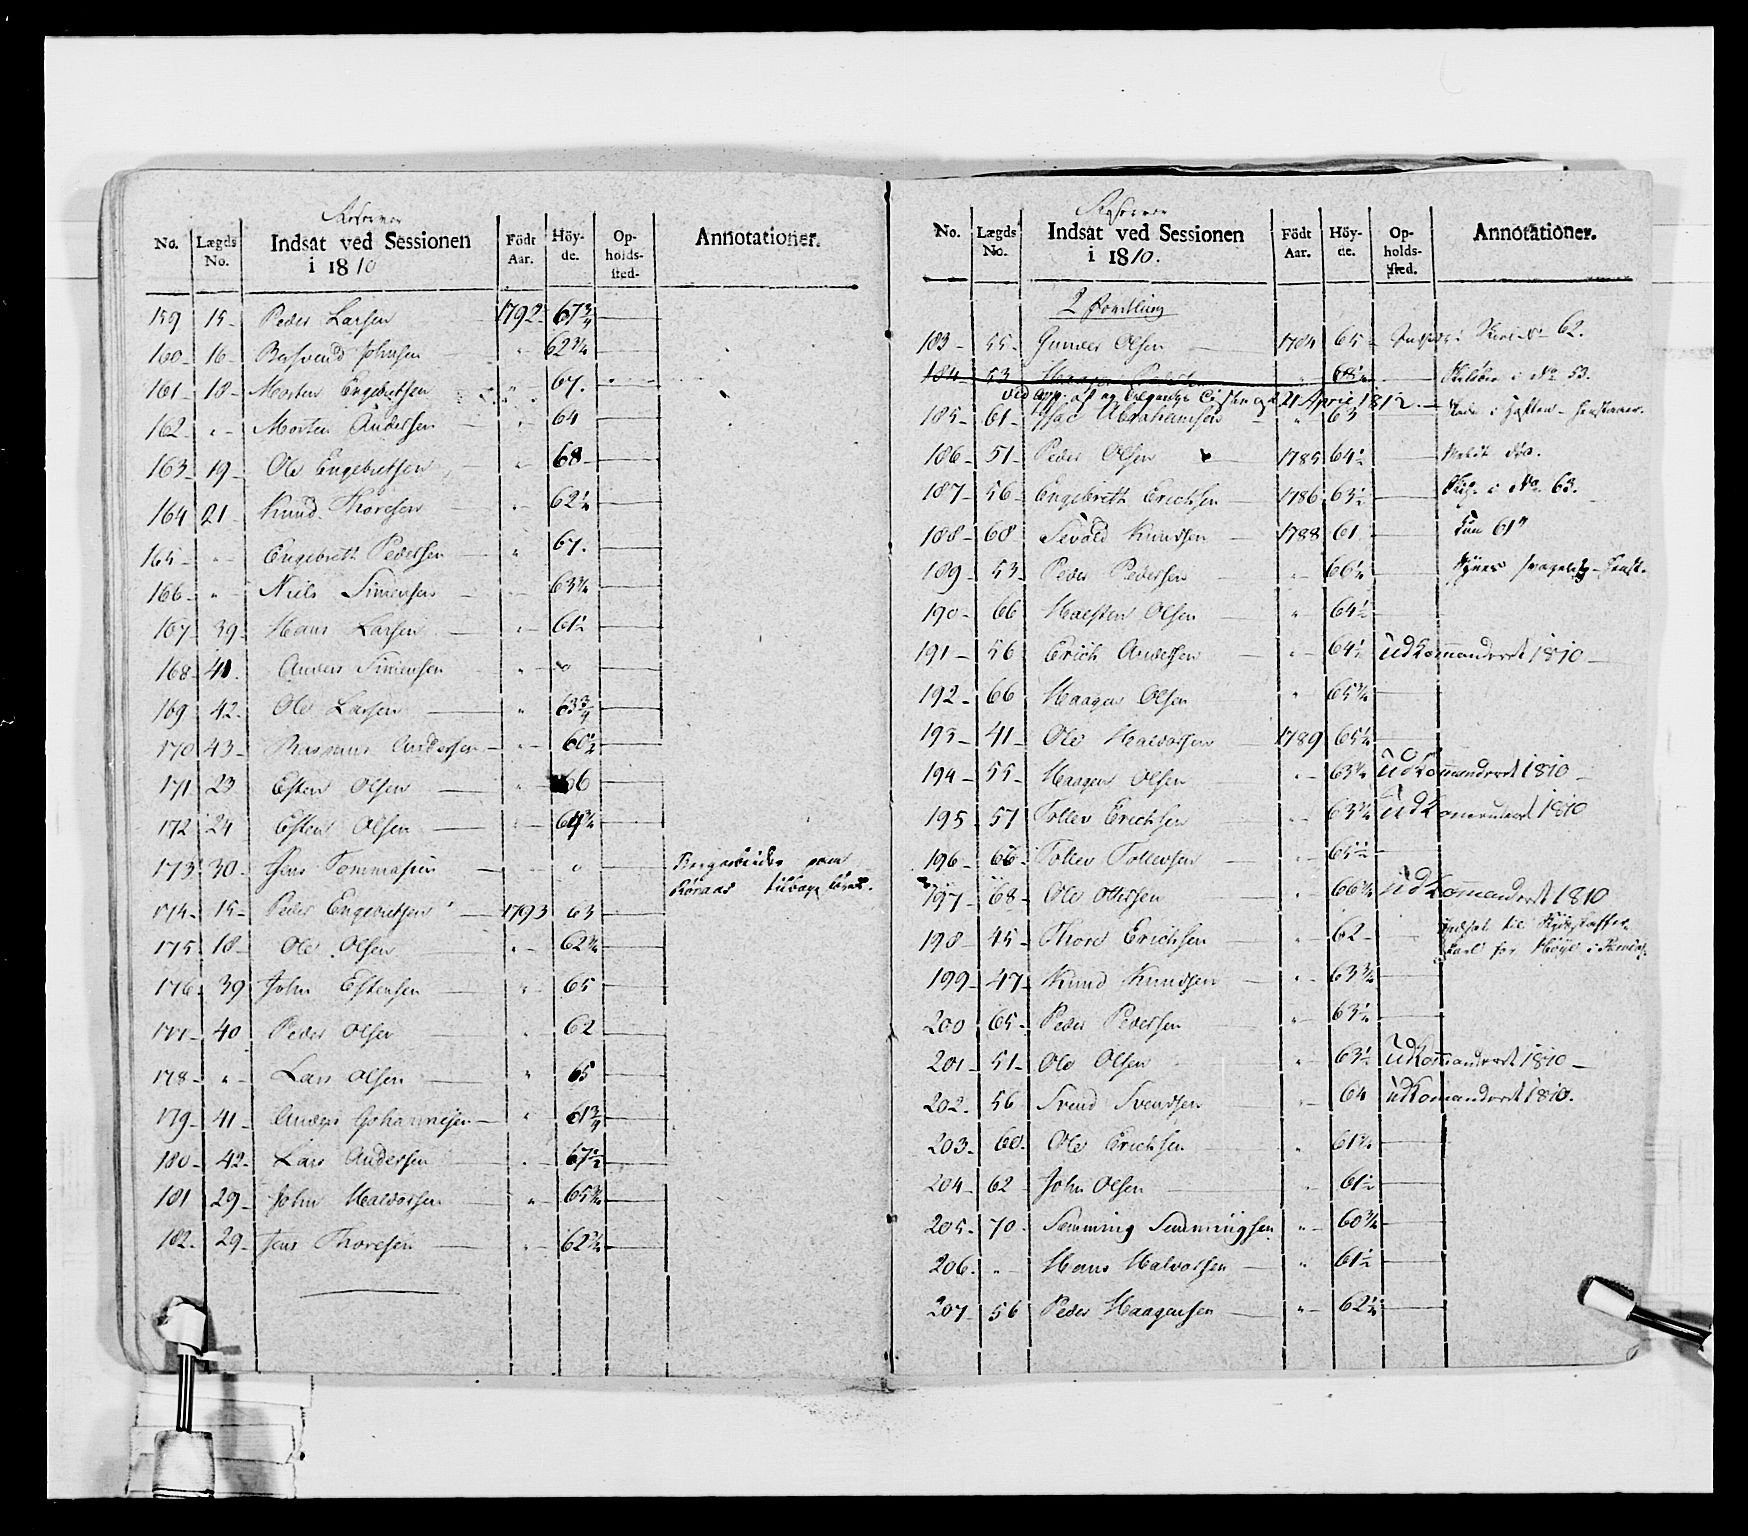 Reserver
No. Lægds No. Indsat ved Sessionen i 1810 Födt Aar. Höyde. Opholdssted. Annotationer.
159 15 Peder Larsen 1792 67 3/4
160 16 Johnsen " 62 3/4
161 18 Morten Engebretsen " 67.
162 " Morten Andersen " 64
163 19 Ole Engebretsen " 68
164 21 Knud Thoresen " 62 1/2
165 " Engebreth Pedersen " 67.
166 " Niels Simensen " 63 3/4
167 39 Hans Larsen " 61 1/2
168 41. Anders Simensen " o
169 42. Ole Larsen " 63 3/4
170 43 Rasmus Andersen " 60 1/2
171 23 Esten Olsen " 66
172 24 Esten Olsen " 64 3/4
173 30 Jens Tommasen " o
174 15 Peder Engebretsen 1793 63
175 18 Ole Olsen " 62 3/4
176 39 John Estensen " 65
177 40 Peder Olsen " 62
178 " Lars Olsen " 65
179 41 Anders Johannesen " 61 3/4
180 42 Lars Andersen " 67 1/2
181 29 John Halvorsen " 65 3/4
182. 29 Jens Thoresen " 62 3/4
Reserver
No. Lægds No. Indsat ved Sessionen i 1810. Födt Aar. Höyde. Opholdssted. Annotationer.
183 55 Gunder Olsen 1784 65 62.
184 53 " 68 1/2 i No 53.
21 April 1812.
185 61 Isac Abrahamsen " 63
186 51 Peder Olsen 1785 64 1/2
187 56 Engebreth Erichsen 1786 63 1/2 i No. 63.
188 68 Sivald Knudsen 1788 61 kun 61"
189 53 Peder Pedersen " 66 1/2
190 66 Halsten Olsen " 64 1/2
191 56 Erich Andersen " 64 1/2 udkommanderet 1810
192 66 Haagen Olsen " 65 3/4
193 41 Ole Halvorsen 1789 65 1/2
194 55 Haagen Olsen " 63 3/4 udkommanderet 1810
195 57 Tollev Erichsen " 63 3/4 udkommanderet 1810
196 66 Tollev Tollevsen " 65 1/2
197 68 Ole Ottersen " 66 3/4 udkommanderet 1810
198 45 Thore Erichsen " 62 Indsat til
199 47 Knud Knudsen " 63 3/4
200 65 Peder Pedersen " 63 1/2
201 51 Ole Olsen " 63 1/2 udkommanderet 1810
202. 56 Svend Svendsen " 64 udkommanderet 1810.
203 60 Ole Erichsen " 61 3/4
204 62 John Olsen " 61 1/2
205 70 Semming Semmingsen " 60 3/4
206. " Hans Halvorsen " 61 1/2
207 56 Peder Haagensen " 62 1/2